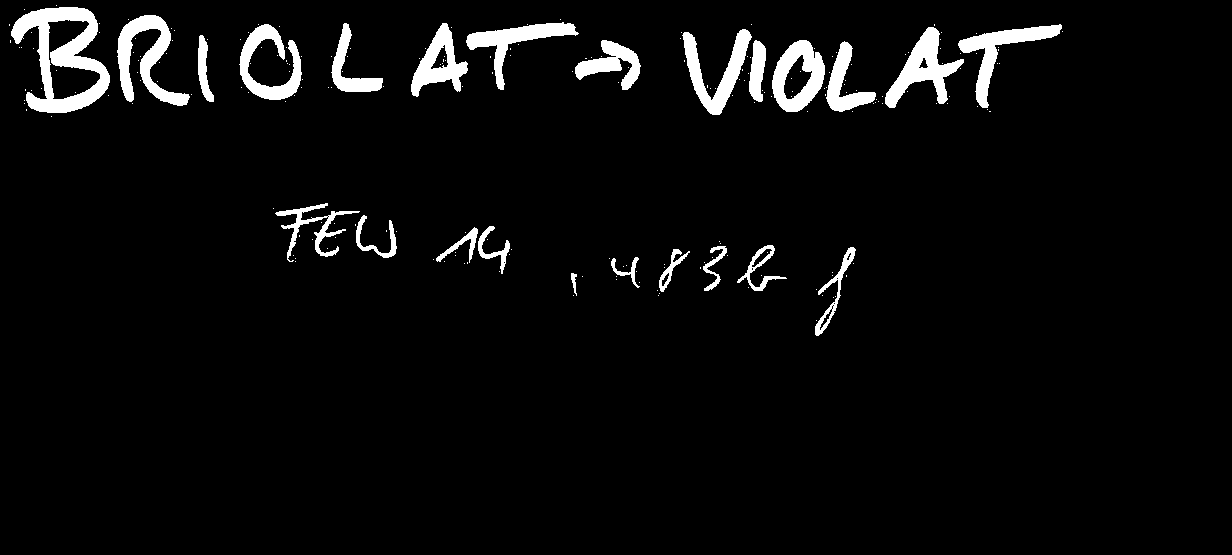 BRIOLAT → VIOLAT
FEW 14, 483b f